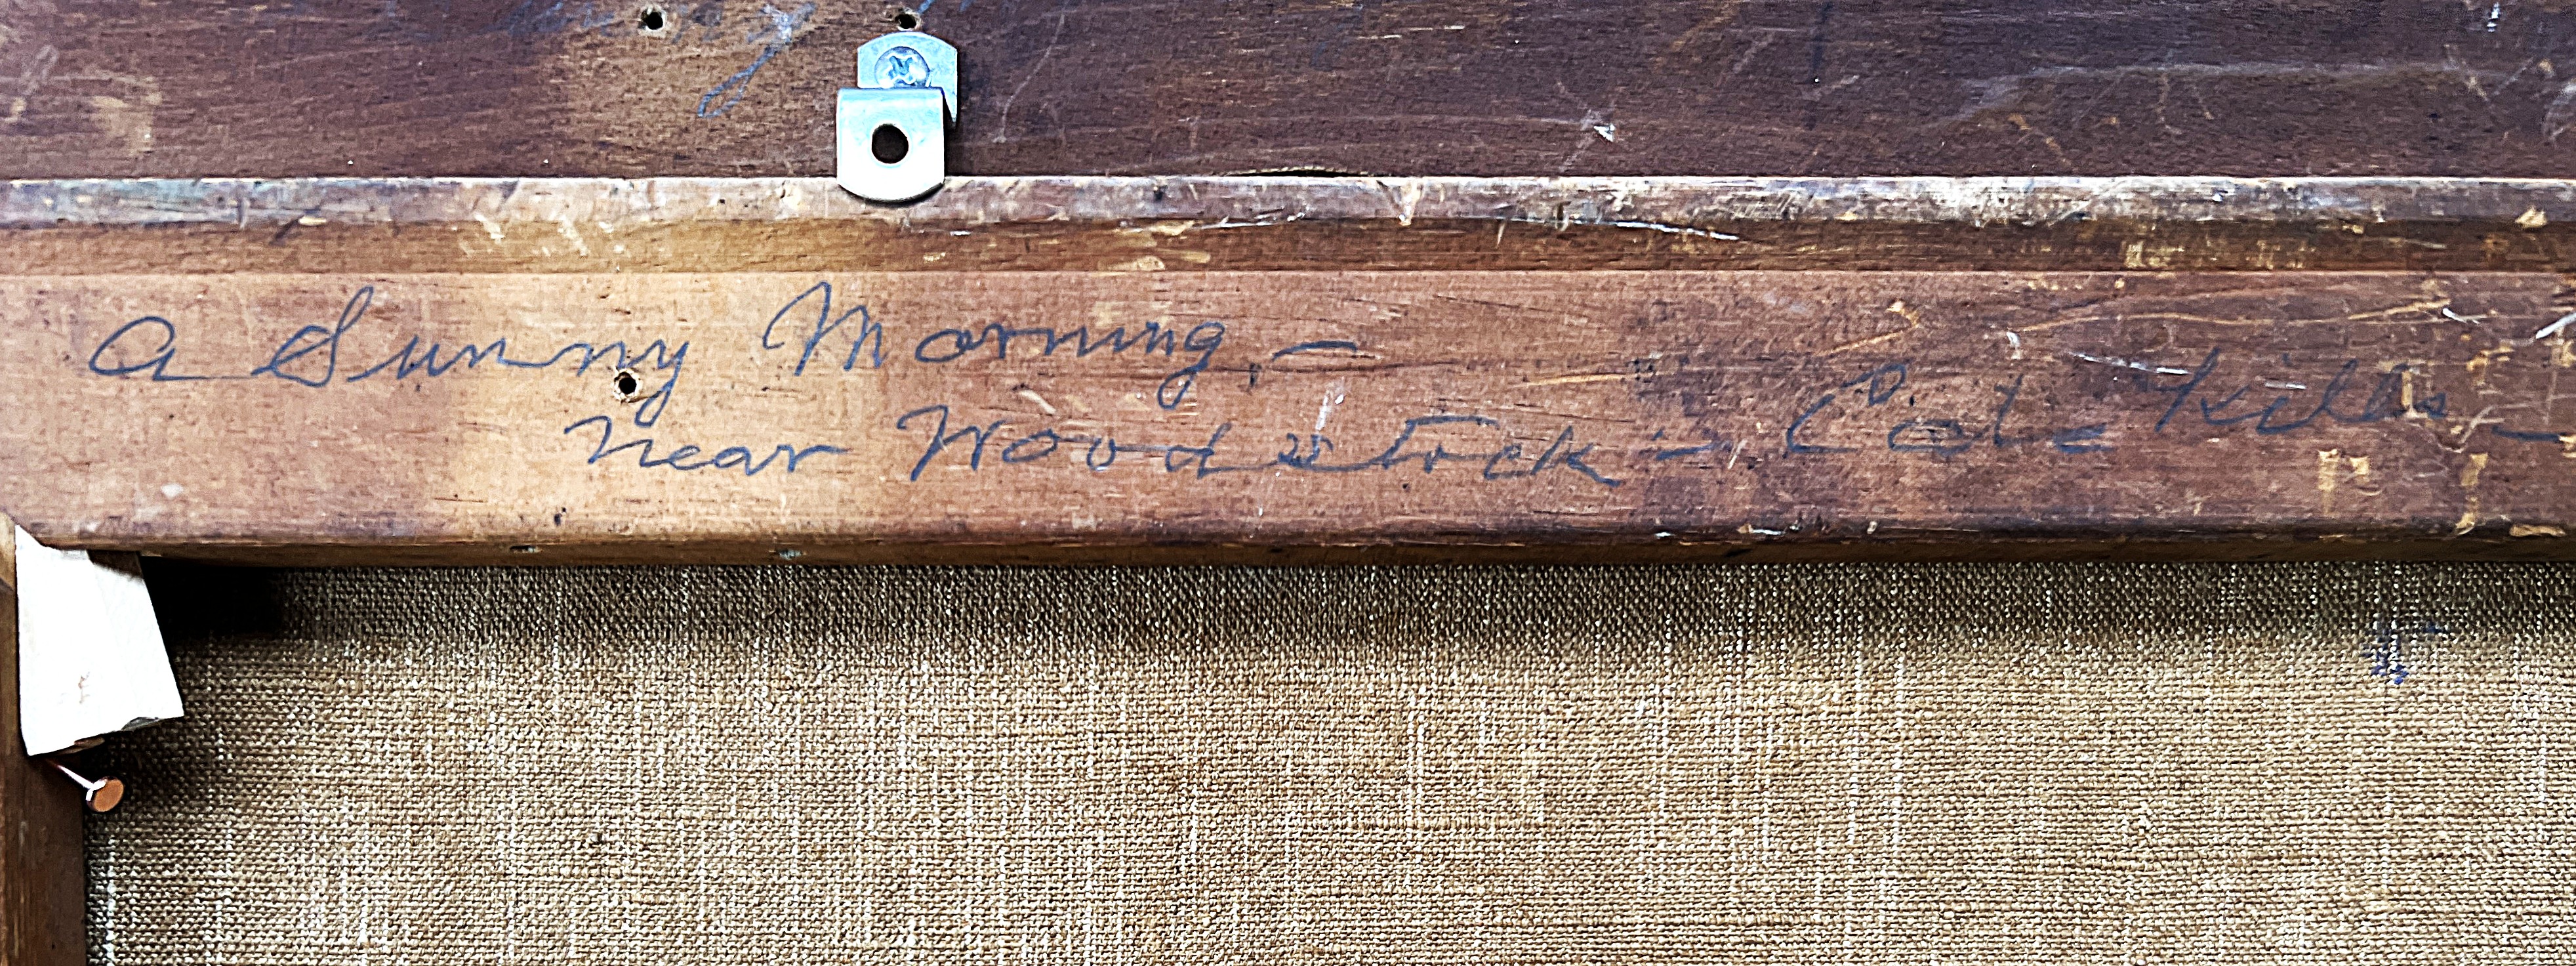 a Sunny Morning, –
near Woodstock – Catskills –